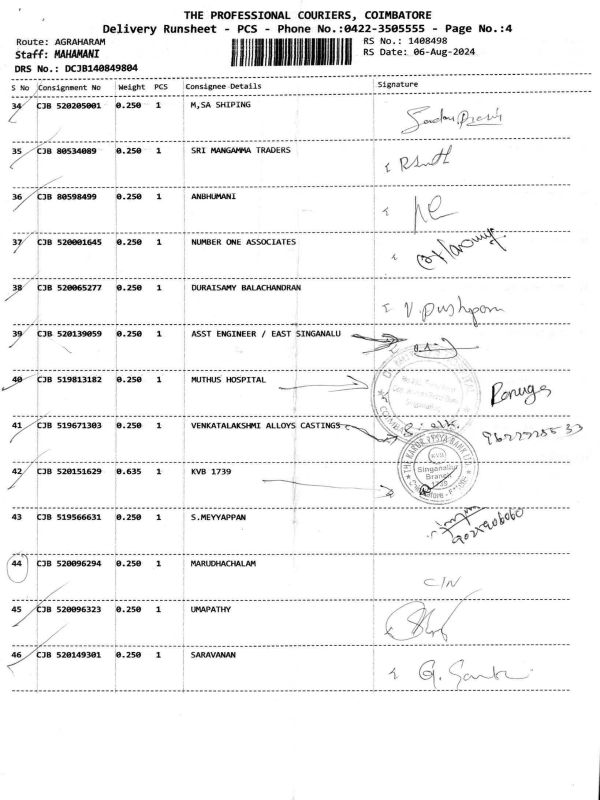 THE PROFESSIONAL COURIERS, COIMBATORE
Delivery Runsheet - PCS - Phone No.:0422-3505555 - Page No.:4
Route: AGRAHARAM
RS No.: 1408498
Staff: MAHAMANI
RS Date: 06-Aug-2024
DRS No.: DCJB140849804
S No Consignment No Weight PCS Consignee Details Signature
34 CJB 520205001 0.250 1 M,SA SHIPING
35 CJB 80534089 0.250 1 SRI MANGAMMA TRADERS
36 CJB 80598499 0.250 1 ANBHUMANI
37 CJB 520001645 0.250 1 NUMBER ONE ASSOCIATES
38 CJB 520065277 0.250 1 DURAISAMY BALACHANDRAN
V. Pushpam
39 CJB 520139059 0.250 1 ASST ENGINEER / EAST SINGANALU
40 CJB 519813182 0.250 1 MUTHUS HOSPITAL
41 CJB 519671303 0.250 1 VENKATALAKSHMI ALLOYS CASTINGS
42 CJB 520151629 0.635 1 KVB 1739
THE KARUR VYSYA BANK LTD.
KVB
Singanallur
Branch
43 CJB 519566631 0.250 1 S.MEYYAPPAN
44 CJB 520096294 0.250 1 MARUDHACHALAM
C/N
45 CJB 520096323 0.250 1 UMAPATHY
46 CJB 520149301 0.250 1 SARAVANAN